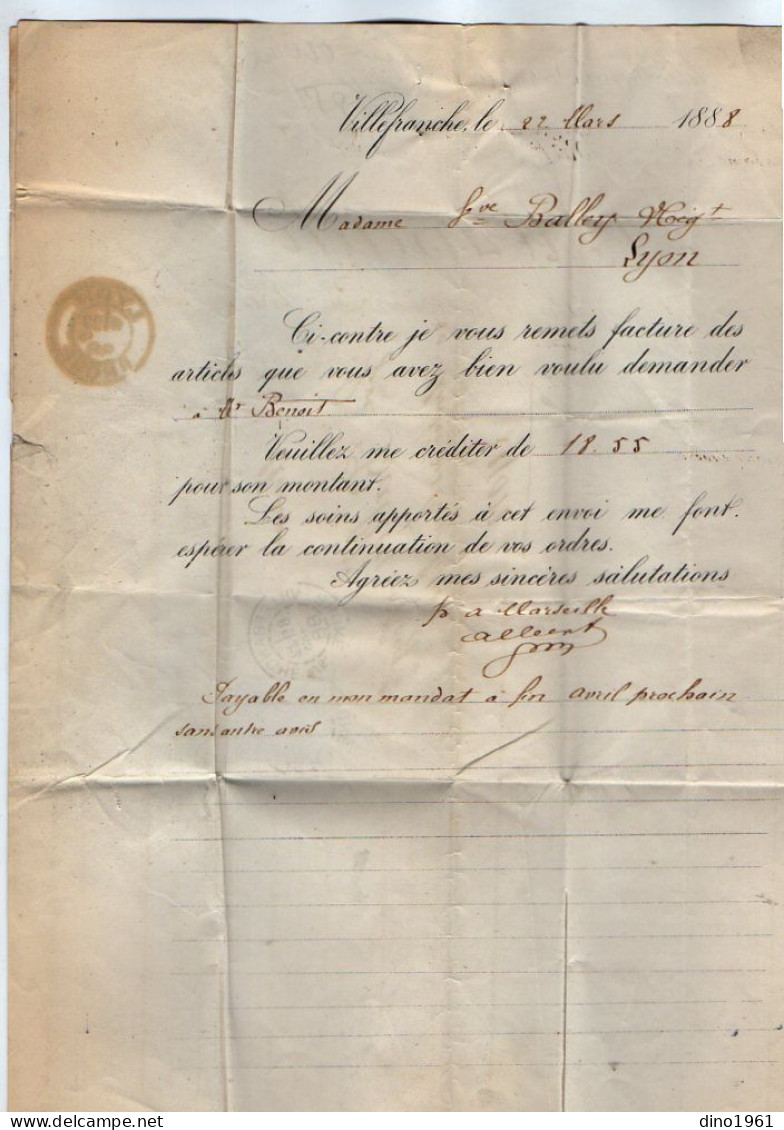 Villefranche, le 22 Mars 1888
Madame Vve Balley Négt
Lyon
Ci-contre je vous remets facture des
articles que vous avez bien voulu demander
à Mr Benoit
Veuillez me créditer de 18.55
pour son montant.
Les soins apportés à cet envoi me font
espérer la continuation de vos ordres.
Agréez mes sincères salutations
a Marseille
Payable en mon mandat à fin avril prochain
sans autre avis
dino1961